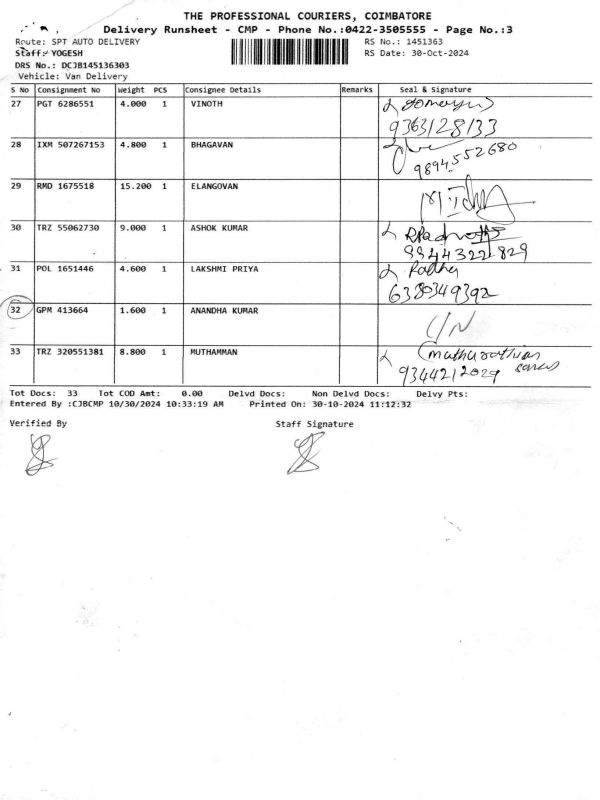 THE PROFESSIONAL COURIERS, COIMBATORE
Delivery Runsheet - CMP - Phone No.:0422-3505555 - Page No.:3
Route: SPT AUTO DELIVERY RS No.: 1451363
Staff: YOGESH RS Date: 30-Oct-2024
DRS No.: DCJB145136303
Vehicle: Van Delivery
S No Consignment No Weight PCS Consignee Details Remarks Seal & Signature
27 PGT 6286551 4.000 1 VINOTH
9363128133
28 IXM 507267153 4.800 1 BHAGAVAN
9894552680
29 RMD 1675518 15.200 1 ELANGOVAN
30 TRZ 55062730 9.000 1 ASHOK KUMAR
9944322829
31 POL 1651446 4.600 1 LAKSHMI PRIYA Radha
6380349392
32 GPM 413664 1.600 1 ANANDHA KUMAR
33 TRZ 320551381 8.800 1 MUTHAMMAN
9344212029
Tot Docs: 33 Tot COD Amt: 0.00 Delvd Docs: Non Delvd Docs: Delvy Pts:
Entered By :CJBCMP 10/30/2024 10:33:19 AM Printed On: 30-10-2024 11:12:32
Verified By Staff Signature